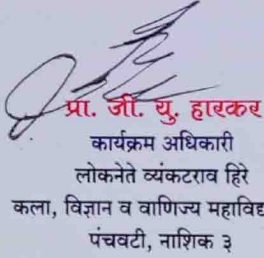 प्रा. जी. यु. हारकर
कार्यक्रम अधिकारी
लोकनेते व्यंकटराव हिरे
कला, विज्ञान व वाणिज्य महाविद्य
पंचवटी, नाशिक ३